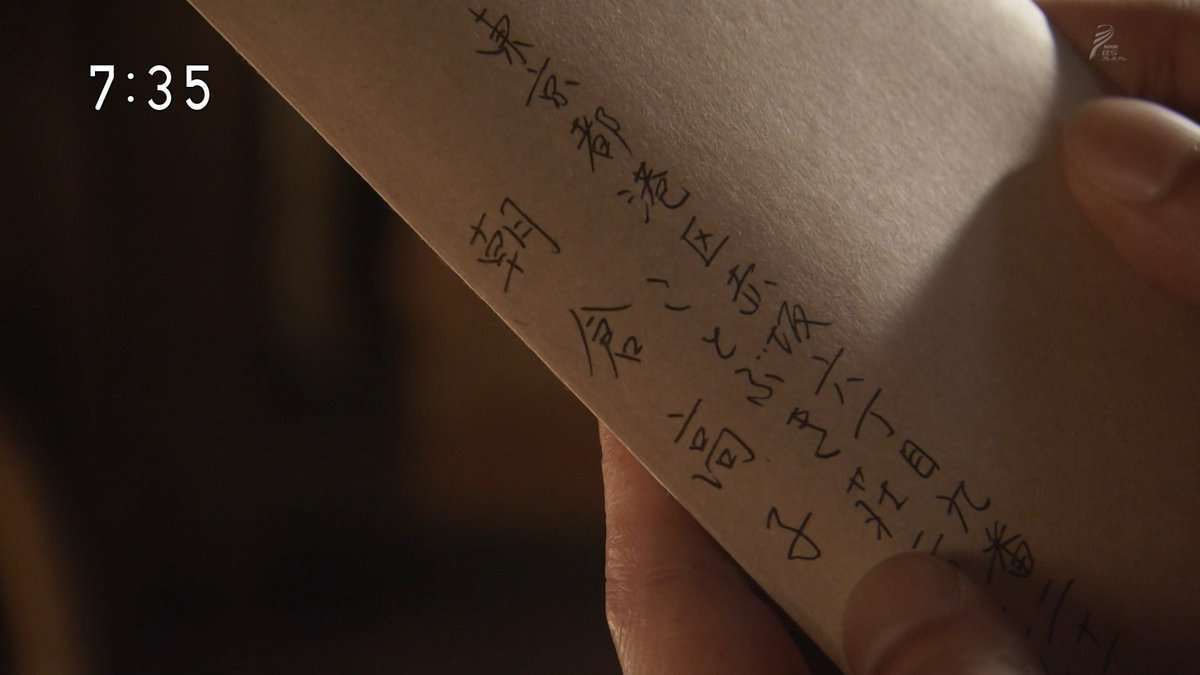 7:35
東京都港区赤坂六丁目九番
ことぶき荘
朝倉高子